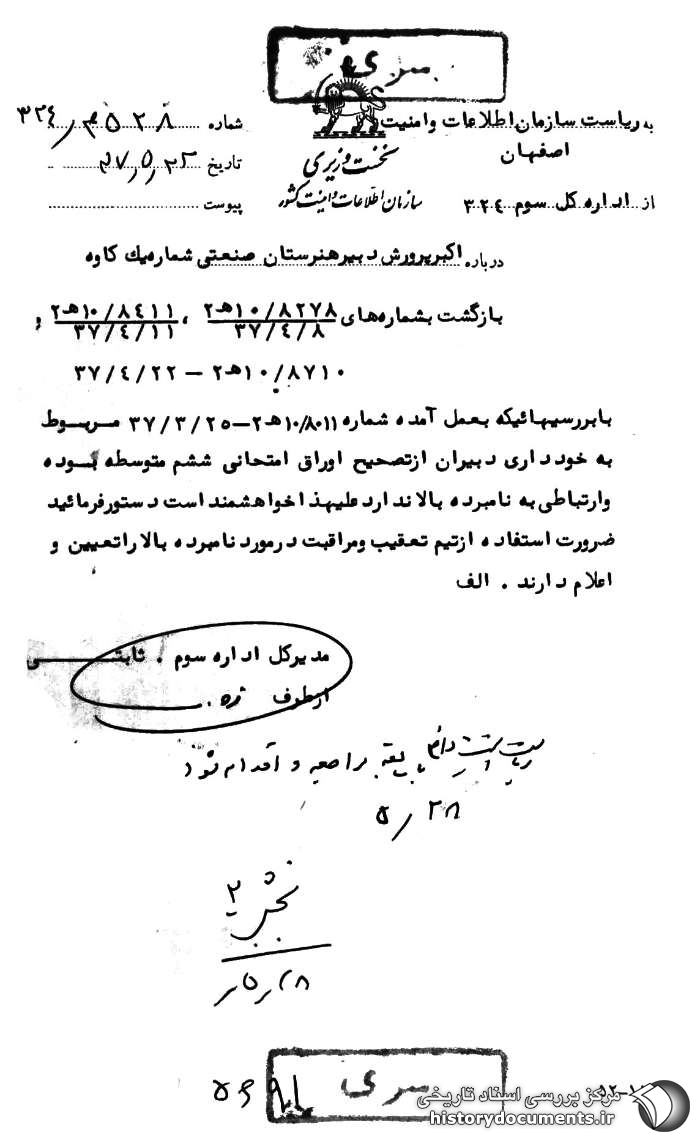 سری
به ریاست سازمان اطلاعات و امنیت
اصفهان
از اداره کل سوم ۳۲۴
نخست وزیری
سازمان اطلاعات و امنیت کشور
شماره ۳۲۴
تاریخ ۳۷٫۵٫۲۳
پیوست
درباره اکبر پرورش دبیر هنرستان صنعتی شماره یک کاوه
بازگشت بشماره‌های ۱۰/۸۲۷۸هـ۲ ، ۱۰/۸۴۱۱هـ۲ و
۳۷/۴/۸ ۳۷/۴/۱۱
۱۰/۸۷۱۰هـ۲ – ۳۷/۴/۲۲
با بررسیهائیکه بعمل آمده شماره ۱۰/۸۰۱۱هـ۲–۳۷/۳/۲۵ مربوط
به خودداری دبیران از تصحیح اوراق امتحانی ششم متوسطه بوده
وارتباطی به نامبرده بالا ندارد علیهذا خواهشمند است دستور فرمائید
ضرورت استفاده از تیم تعقیب ومراقبت درمورد نامبرده بالا را تعیین و
اعلام دارند . الف
مدیرکل اداره سوم . ثابتی
ازطرف
مراجعه و اقدام شود
۵٫۲۸
بخش ۲
۵٫۲۸
سری
مرکز بررسی اسناد تاریخی
historydocuments.ir